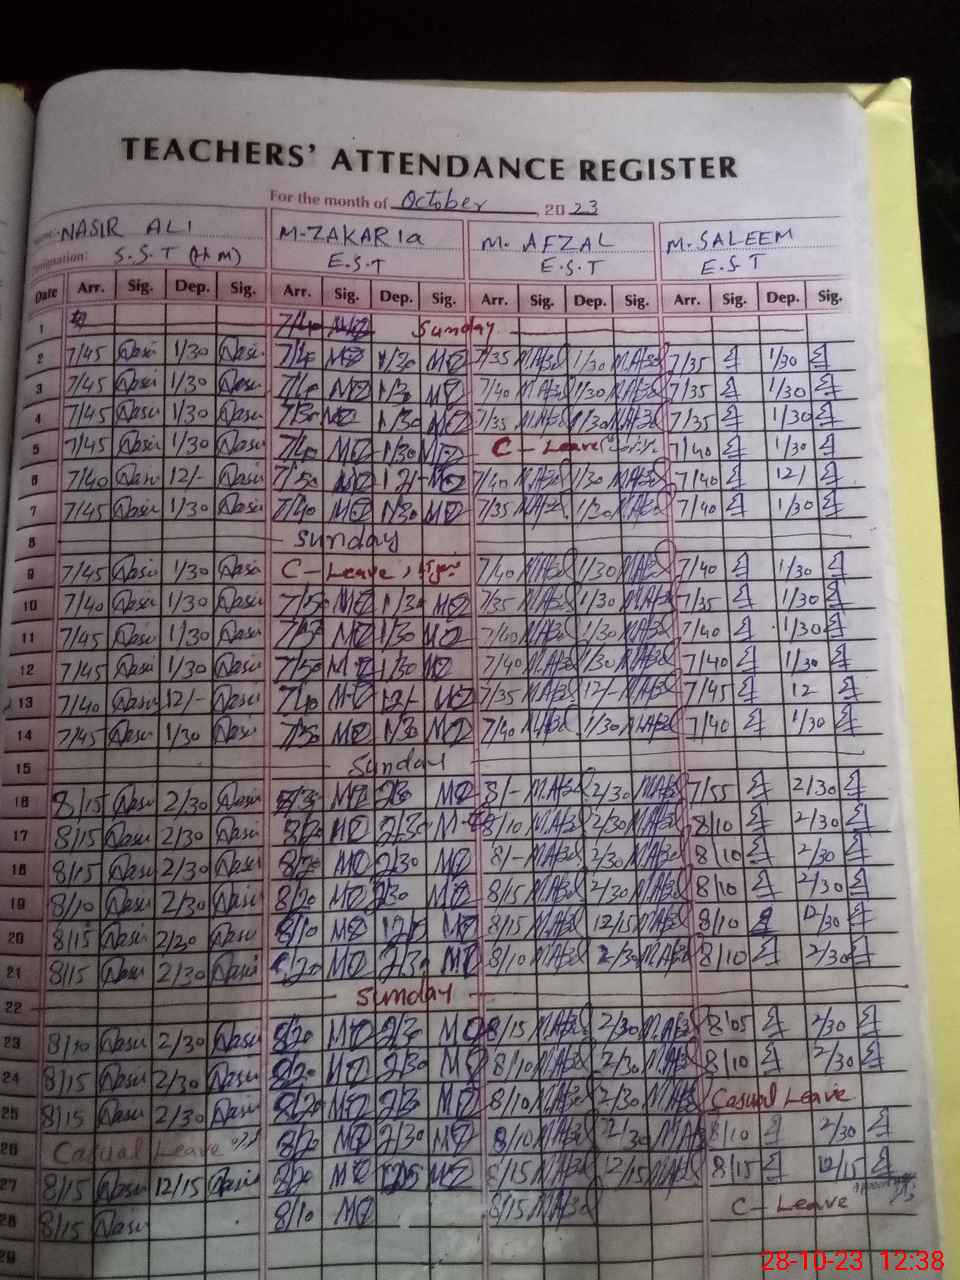 TEACHERS' ATTENDANCE REGISTER
For the month of October, 2023
NASIR ALI M-ZAKARIa M. AFZAL M. SALEEM
Designation: S.S.T (H M) E.S.T E.S.T E.S.T
Date Arr. Sig. Dep. Sig. Arr. Sig. Dep. Sig. Arr. Sig. Dep. Sig. Arr. Sig. Dep. Sig.
1 Sunday
2 7/45 Nasir 1/30 Nasir 7/40 MZ 1/30 MZ 7/35 M.Afzal 1/30 M.Afzal 7/35 1/30
3 7/45 Nasir 1/30 Nasir 7/40 MZ 1/30 MZ 7/40 M.Afzal 1/30 M.Afzal 7/35 1/30
4 7/45 Nasir 1/30 Nasir MZ 1/30 MZ 7/35 M.Afzal 1/30 M.Afzal 7/35 1/30
5 7/45 Nasir 1/30 Nasir 7/40 MZ 1/30 MZ C - Leave 7/40 1/30
6 7/40 Nasir 12/- Nasir 7/50 MZ 12/- MZ 7/40 M.Afzal 1/30 M.Afzal 7/40 12/
7 7/45 Nasir 1/30 Nasir 7/40 MZ 1/30 MZ 7/35 M.Afzal 1/30 M.Afzal 7/40 1/30
8 Sunday
9 7/45 Nasir 1/30 Nasir C - Leave 7/40 M.Afzal 1/30 M.Afzal 7/40 1/30
10 7/40 Nasir 1/30 Nasir 7/50 MZ 1/30 MZ 7/35 M.Afzal 1/30 M.Afzal 7/35 1/30
11 7/45 Nasir 1/30 Nasir MZ 1/30 MZ 7/40 M.Afzal 1/30 M.Afzal 7/40 1/30
12 7/45 Nasir 1/30 Nasir 7/50 MZ 1/30 MZ 7/40 M.Afzal 1/30 M.Afzal 7/40 1/30
13 7/40 Nasir 12/- Nasir 7/40 MZ 12/- MZ 7/35 M.Afzal 12/- M.Afzal 7/45 12
14 7/45 Nasir 1/30 Nasir MZ 1/30 MZ 7/40 M.Afzal 1/30 M.Afzal 7/40 1/30
15 Sunday
16 8/15 Nasir 2/30 Nasir MZ MZ 8/- M.Afzal 2/30 M.Afzal 7/55 2/30
17 8/15 Nasir 2/30 Nasir 8/20 MZ 2/30 M-Z 8/10 M.Afzal 2/30 M.Afzal 8/10 2/30
18 8/15 Nasir 2/30 Nasir 8/20 MZ 2/30 MZ 8/- M.Afzal 2/30 M.Afzal 8/10 2/30
19 8/10 Nasir 2/30 Nasir 8/20 MZ 2/30 MZ 8/15 M.Afzal 2/30 M.Afzal 8/10 2/30
20 8/15 Nasir 2/20 Nasir 8/10 MZ MZ 8/15 M.Afzal 12/15 M.Afzal 8/10 12/30
21 8/15 Nasir 2/30 Nasir 8/20 MZ 2/30 MZ 8/10 M.Afzal 2/30 M.Afzal 8/10 2/30
22 Sunday
23 8/10 Nasir 2/30 Nasir 8/20 MZ 2/30 MZ 8/15 M.Afzal 2/30 M.Afzal 8/05 2/30
24 8/15 Nasir 2/30 Nasir 8/20 MZ 2/30 MZ 8/10 M.Afzal 2/30 M.Afzal 8/10 2/30
25 8/15 Nasir 2/30 Nasir 8/20 MZ 2/30 MZ 8/10 M.Afzal 2/30 M.Afzal Casual Leave
26 Casual Leave 8/20 MZ 2/30 MZ 8/10 M.Afzal 2/30 M.Afzal 8/10 2/30
27 8/15 Nasir 12/15 Nasir 8/20 MZ MZ 8/15 M.Afzal 12/15 M.Afzal 8/15 12/15
28 8/15 Nasir 8/10 MZ 8/15 M.Afzal C - Leave
29
28-10-23 12:38